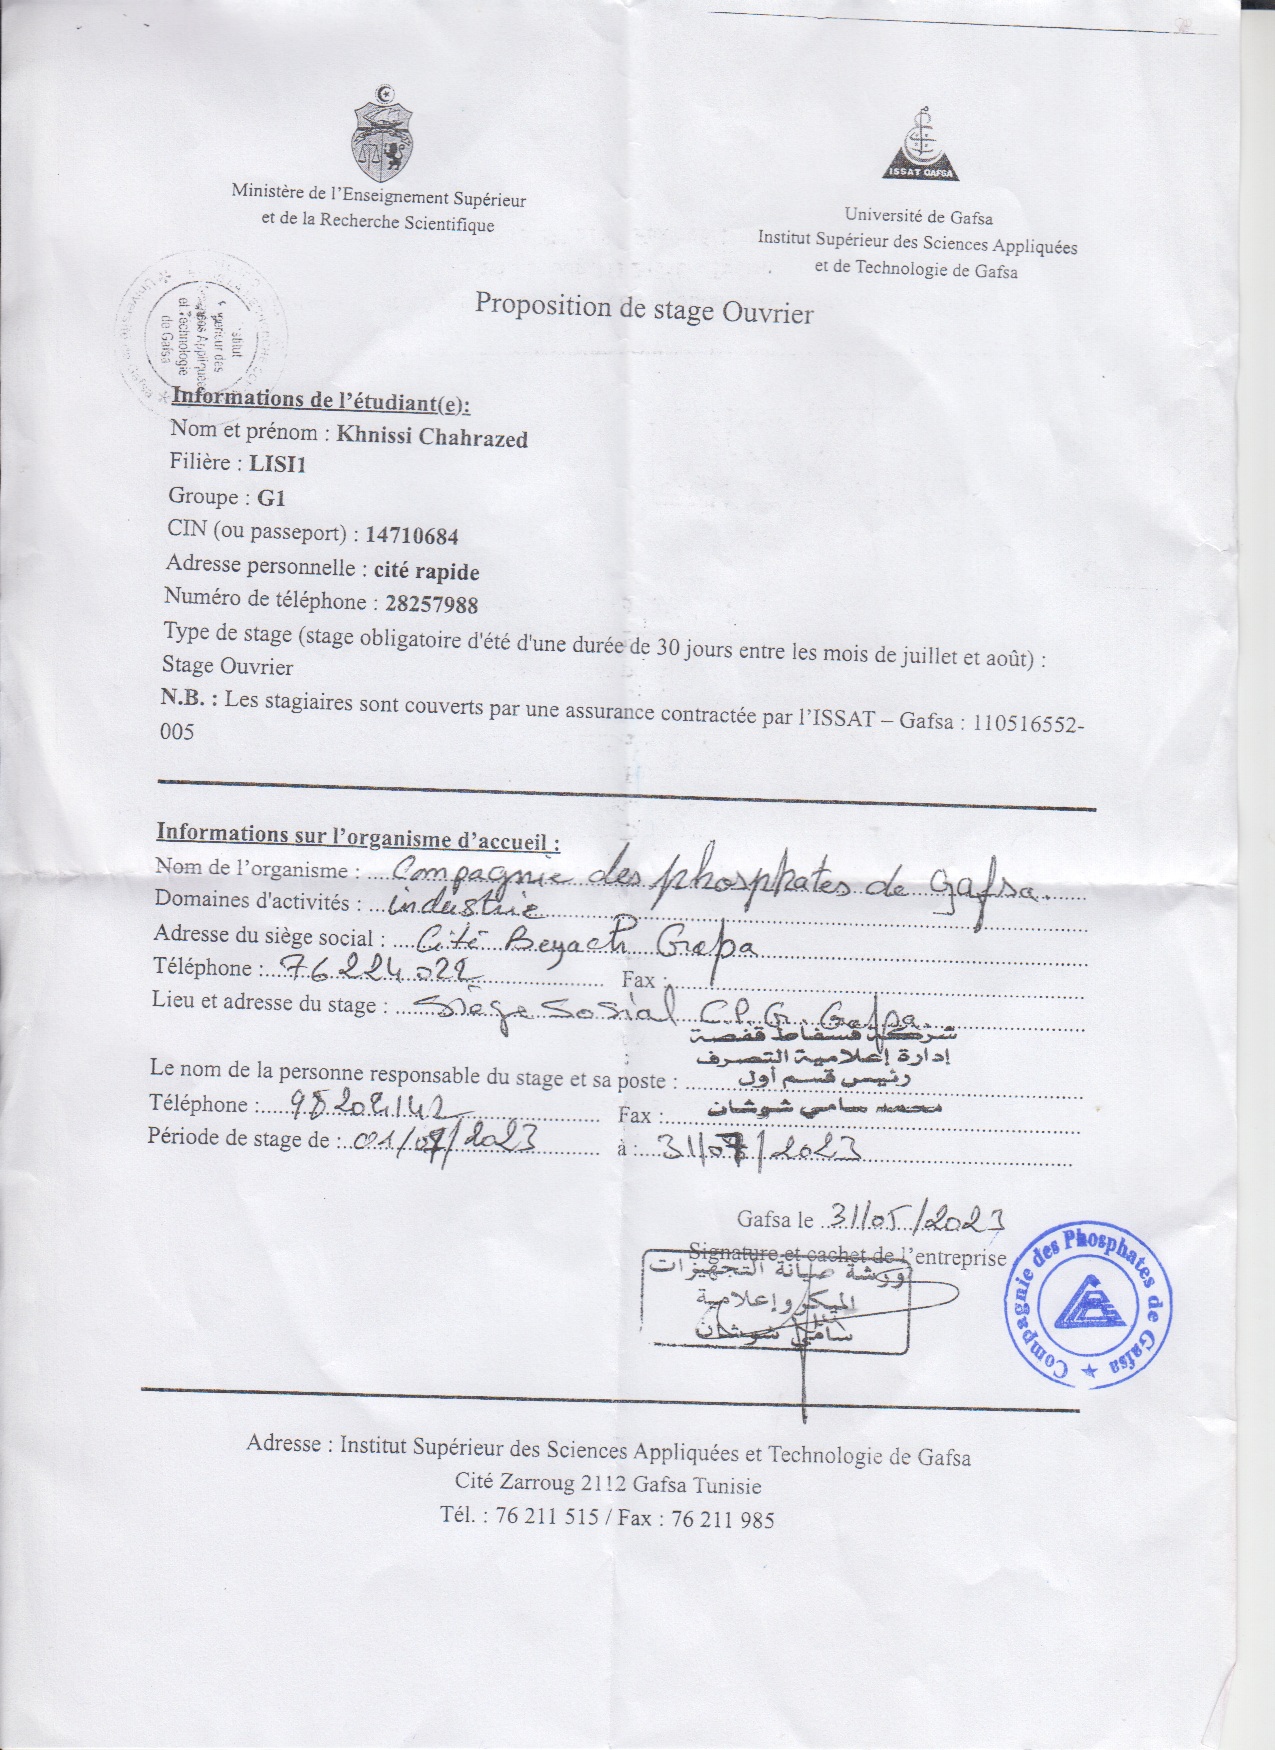 ISSAT GAFSA
Ministère de l'Enseignement Supérieur
et de la Recherche Scientifique
Université de Gafsa
Institut Supérieur des Sciences Appliquées
et de Technologie de Gafsa
Proposition de stage Ouvrier
et Technologie
de Gafsa
Informations de l'étudiant(e):
Nom et prénom : Khnissi Chahrazed
Filière : LISI1
Groupe : G1
CIN (ou passeport) : 14710684
Adresse personnelle : cité rapide
Numéro de téléphone : 28257988
Type de stage (stage obligatoire d'été d'une durée de 30 jours entre les mois de juillet et août) :
Stage Ouvrier
N.B. : Les stagiaires sont couverts par une assurance contractée par l'ISSAT – Gafsa : 110516552-
005
Informations sur l'organisme d'accueil :
Nom de l'organisme : Compagnie des phosphates de Gafsa.
Domaines d'activités : industrie
Adresse du siège social : Cité Beyach Gafsa
Téléphone : 76 224 022 Fax :
Lieu et adresse du stage : Siège Sosial C.P.G. Gafsa.
شركة فسفاط قفصة
إدارة إعلامية التصرف
Le nom de la personne responsable du stage et sa poste : رئيس قسم أول
Téléphone : Fax : محمد سامي شوشان
Période de stage de : 01/07/2023 à : 31/07/2023
Gafsa le 31/05/2023
Signature et cachet de l'entreprise
ورشة صيانة التجهيزات
الميكروإعلامية
سامي شوشان
Compagnie des Phosphates de Gafsa
Adresse : Institut Supérieur des Sciences Appliquées et Technologie de Gafsa
Cité Zarroug 2112 Gafsa Tunisie
Tél. : 76 211 515 / Fax : 76 211 985